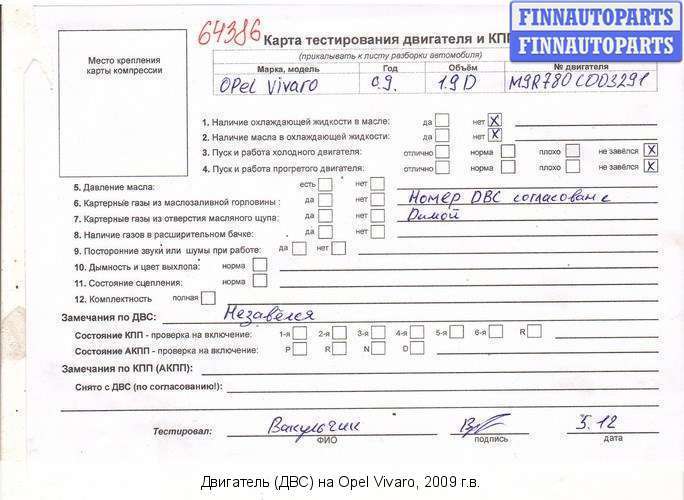 64386
Карта тестирования двигателя и КПП
FINNAUTOPARTS
FINNAUTOPARTS
(прикалывать к листу разборки автомобиля)
Место крепления
карты компрессии
Марка, модель Год Объём № двигателя
Opel Vivaro 09. 1.9D M9R780C003291
1. Наличие охлаждающей жидкости в масле: да нет X
2. Наличие масла в охлаждающей жидкости: да нет X
3. Пуск и работа холодного двигателя: отлично норма плохо не завёлся X
4. Пуск и работа прогретого двигателя: отлично норма плохо не завёлся X
5. Давление масла: есть нет
6. Картерные газы из маслозаливной горловины : да нет Номер ДВС согласован с
7. Картерные газы из отверстия масляного щупа: да нет Димой
8. Наличие газов в расширительном бачке: да нет
9. Посторонние звуки или шумы при работе: да нет
10. Дымность и цвет выхлопа: норма
11. Состояние сцепления: норма
12. Комплектность полная
Замечания по ДВС: Незавёлся
Состояние КПП - проверка на включение: 1-я 2-я 3-я 4-я 5-я 6-я R
Состояние АКПП - проверка на включение: P R N D
Замечания по КПП (АКПП):
Снято с ДВС (по согласованию!):
Тестировал: Вакульчик 5.12
ФИО подпись дата
Двигатель (ДВС) на Opel Vivaro, 2009 г.в.